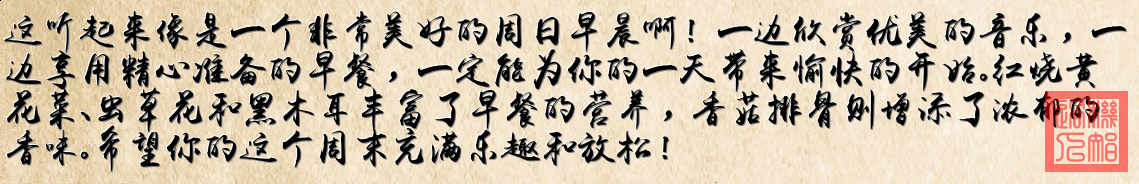 这听起来像是一个非常美好的周日早晨啊！一边欣赏优美的音乐，一
边享用精心准备的早餐，一定能为你的一天带来愉快的开始。红烧黄
花菜、虫草花和黑木耳丰富了早餐的营养，香菇排骨则增添了浓郁的
香味。希望你的这个周末充满乐趣和放松！